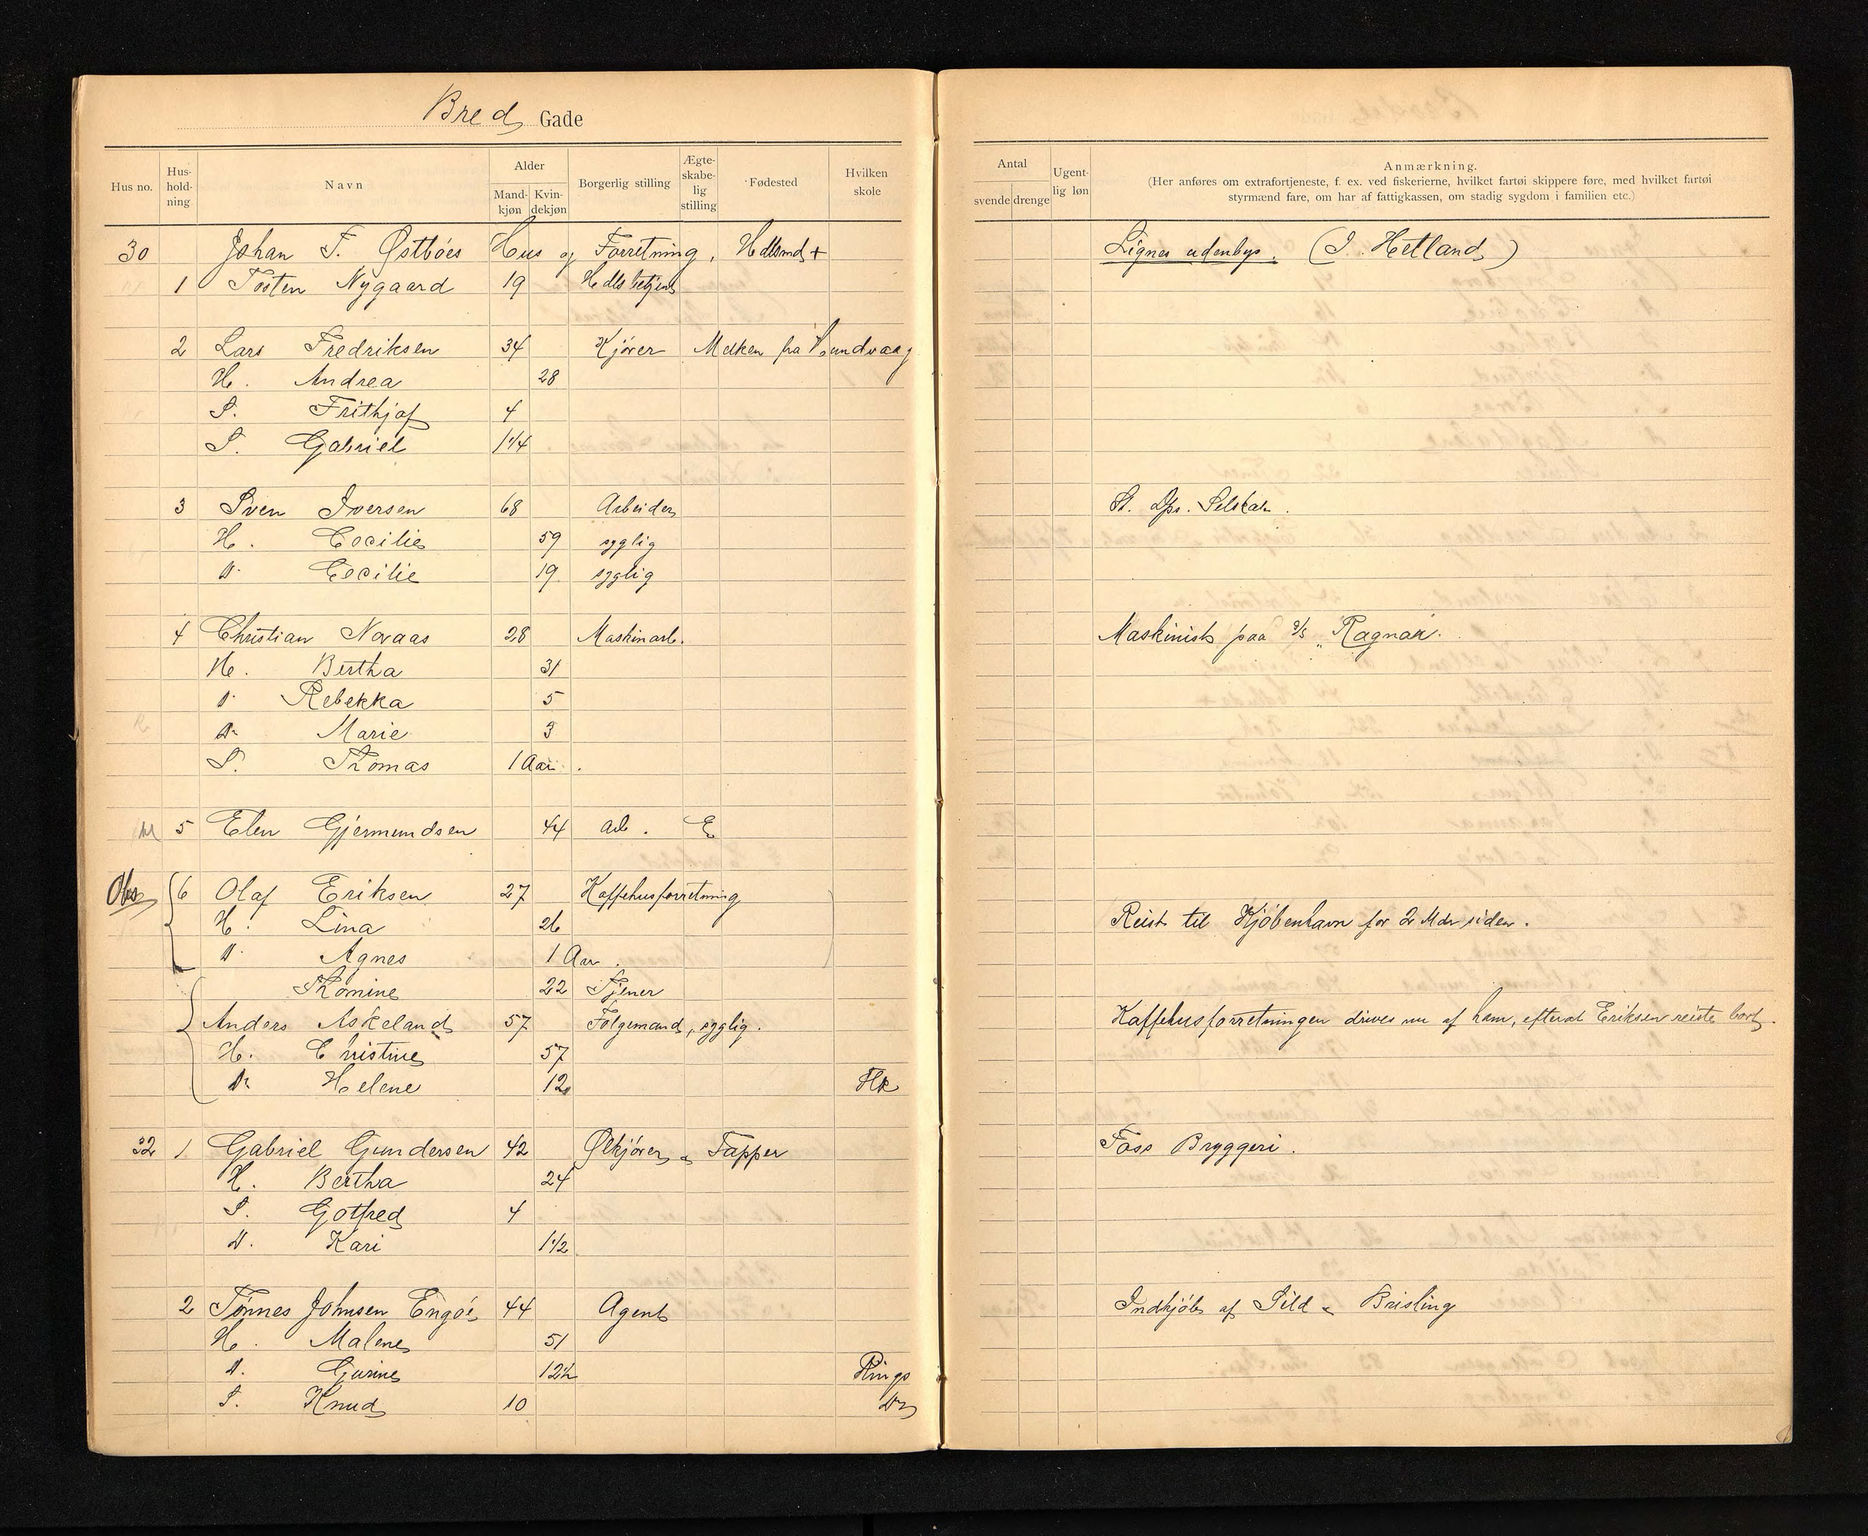 Bred Gade
Hus no. Hus-hold-ning Navn Alder Mand-kjøn Kvin-dekjøn Borgerlig stilling Ægte-skabe-lig stilling Fødested Hvilken skole
30 Johan T. Østbøes Hus og Forretning, Hdlsmd +
1 Tosten Nygaard 19 Hdlsbetjent
2 Lars Fredriksen 34 Kjører Melken fra Hundvaag
H. Andrea 28
S. Frithjof 4
S. Gabriel 1 1/4
3 Sven Iversen 68 Arbeider
H. Cecilie 59 syglig
D. Cecilie 19 syglig
4 Christian Novaas 28 Maskinarb.
H. Bertha 31
D. Rebekka 5
D. Marie 3
S. Thomas 1 Aar.
5 Elen Gjermundsen 44 arb. E
Obs 6 Olaf Eriksen 27 Kaffehusforretning
H. Lina 26
D. Agnes 1 Aar.
Thomine 22 Tjener
Anders Askeland 57 Følgemand, syglig.
H. Christine 57
D. Helene 12 Flk
32 1 Gabriel Gundersen 42 Ølkjører & Tapper
H. Bertha 24
S. Gotfred 4
D. Kari 1 1/2
2 Tønnes Johnsen Engøe 44 Agent
H. Malene 51
D. Gurine 12 1/2 Rings
S. Knud 10 Do
Antal svende drenge Ugent-lig løn Anmærkning.
(Her anføres om extrafortjeneste, f. ex. ved fiskerierne, hvilket fartøi skippere føre, med hvilket fartøi
styrmænd fare, om har af fattigkassen, om stadig sygdom i familien etc.)
Lignes udenbys. (I. Hetland)
St. Dps. Selskab.
Maskinist paa s/s "Ragnar.
Reist til Kjøbenhavn for 2 Mdr siden.
Kaffehusforretningen drives nu af ham, efterat Eriksen reiste bort.
Foss Bryggeri.
Indkjøb af Sild & Brisling